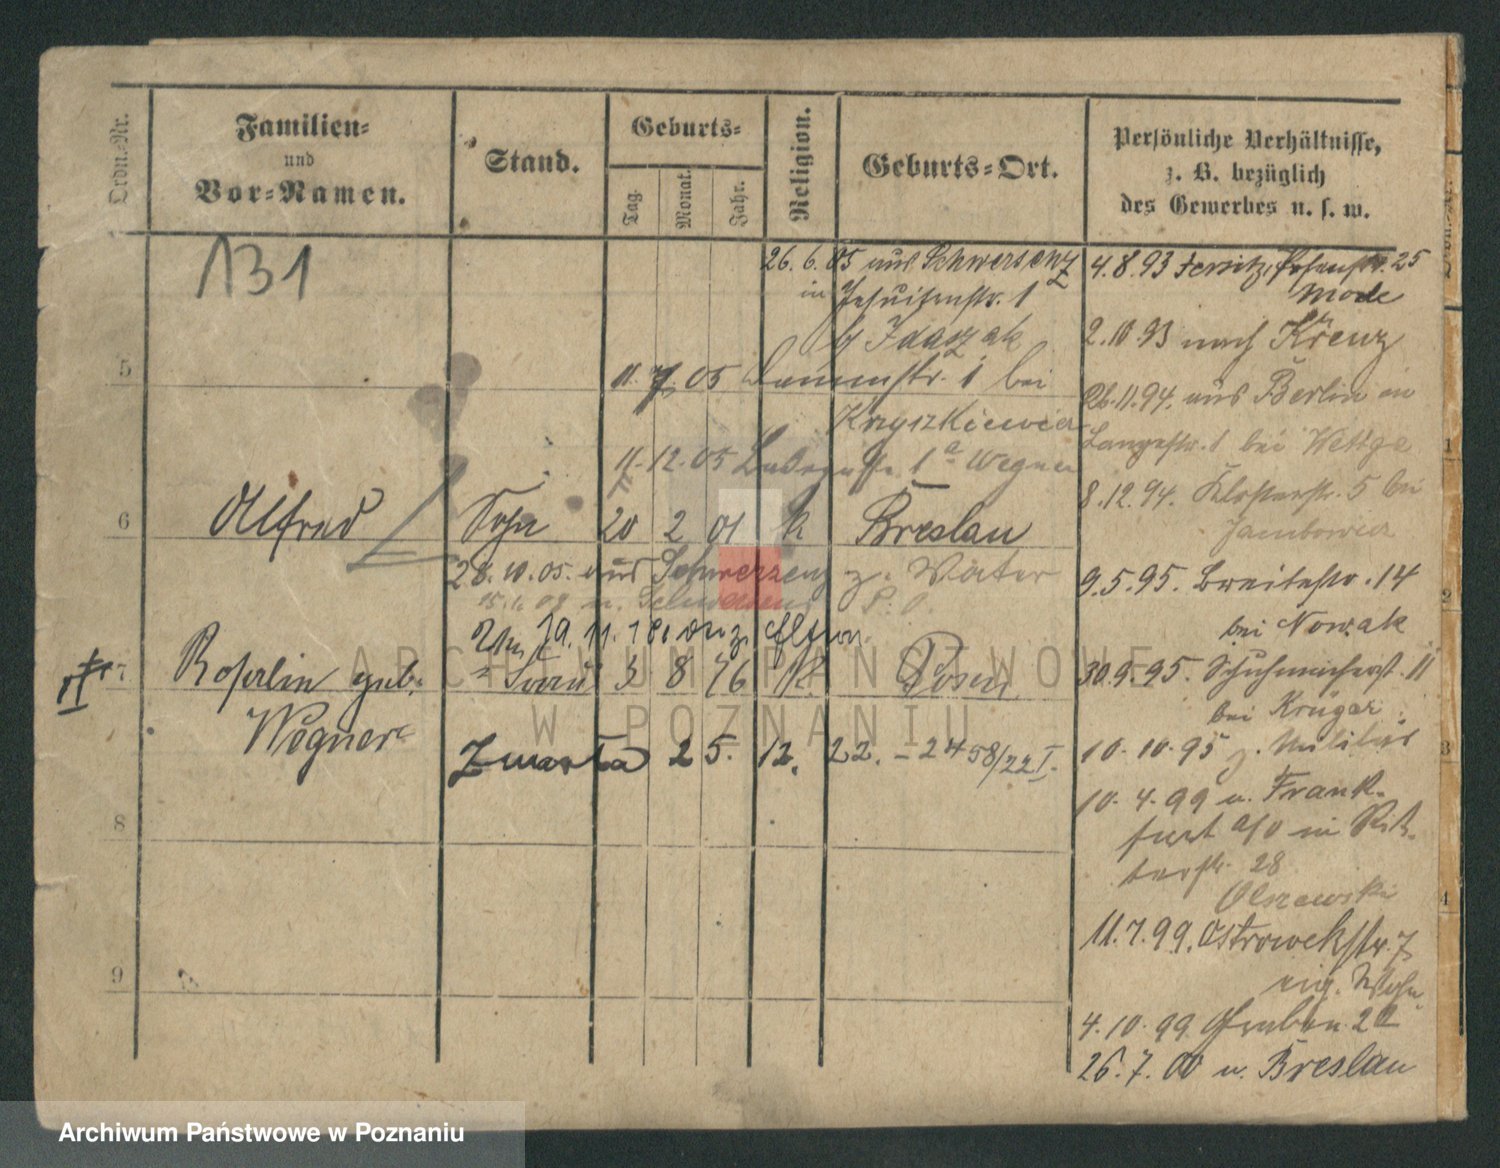 Ordn.-Nr.
Familien-
und
Vor-Namen.
Stand.
Geburts-
Tag.
Monat.
Jahr.
Religion.
Geburts-Ort.
Persönliche Verhältnisse,
z. B. bezüglich
des Gewerbes u. s. w.
131
26. 6. 05 aus Schwersenz
in Jesuitenstr. 1
b Idaszak
5
11. 7. 05 bei
11. 12. 05 1a Wegner
6 Alfred Sohn 20 2 01 k Breslau
28. 10. 05. aus Schwersenz z. Vater
n. Schwersenz P. O.
19. 11. 18.
7 geb. Frau 3 8 76 K. Posen
Wegner
Zmarła 25. 12. 22. - 2458/22 I.
8
9
4.8.93 Jersitz, Posenstr. 25
Mode
2.10.93 nach Krenz
26.11.94. aus Berlin in
Langestr. 1 bei Wettge
8.12.94. Klosterstr. 5 bei
9.5.95. Breitestr. 14
bei Nowak
30.9.95. Schuhmacherst. 11
bei Krüger
10. 10. 95 z. Militär
10. 4. 99 a. Frank-
furt a/O in Rit-
terstr. 28
Olszewski
11. 7. 99. Ostrowekstr. 7
eig. Wohn.
4. 10. 99 Graben 22
26. 7. 00 n. Breslau
ARCHIWUM PAŃSTWOWE
W POZNANIU
Archiwum Państwowe w Poznaniu